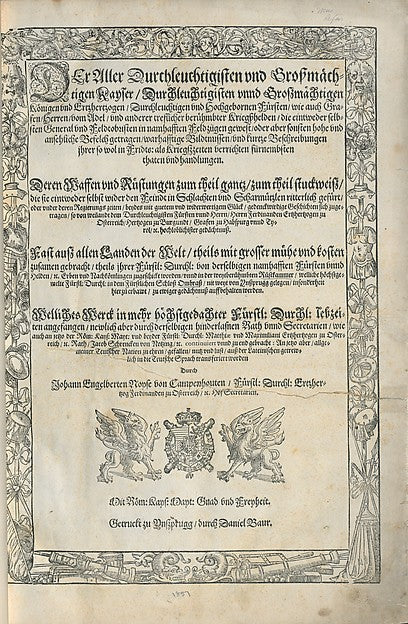 DEr Aller Durchleuchtigisten vnd Großmäch-
tigen Kayser / Durchleuchtigisten vnnd Großmächtigen
Königen vnd Ertzhertzogen / Durchleuchtigen vnd Hochgebornen Fürsten / wie auch Gra-
fen / Herren / vom Adel / vnd anderer treflicher berühmbter Kriegßhelden / die eintweder selb-
sten General vnd Feldtobristen in namhafften Feldzügen gewest / oder aber sonsten hohe vnd
ansehliche Befelch getragen / warhafftige Bildtnussen / vnd kurtze Beschreibungen
jhrer so wol in Fridts: als Kriegszeiten verrichten fürnembsten
thaten vnd handlungen.
Deren Waffen vnd Rüstungen zum theil gantz / zum theil stuckweiß /
die sie eintweder selbst wider den Feindt in Schlachten vnd Scharmützlen ritterlich gefürt /
oder vnder deren Regierung zeiten / beides mit guetem vnd widerwertigem Glück / gedenckwürdige Geschichten sich zuge-
tragen / so von weilandt dem Durchleuchtigisten Fürsten vnnd Herrn / Herrn Ferdinanden Ertzhertzogen zu
Osterreich / Hertzogen zu Burgundt / Grafen zu Habspurg vnnd Ty-
rol / ꝛc. hochlöblichister gedächtnuß.
Fast auß allen Landen der Welt / theils mit grosser mühe vnd kosten
zusamen gebracht / theils jhrer Fürstl: Durchl: von derselbigen namhafften Fürsten vnnd
Helden / ꝛc. Erben vnd Nachkömlingen zugeschickt worden / vnnd in der weytberühmbten Rüstkammer / welliche höchstge-
melte Fürstl: Durchl: in dem Fürstlichen Schloß Ombraß / nit weyt von Ynsprugg gelegen / insonderheit
hierzu erbawt / zu ewiger gedächtnuß auffbehalten werden.
Welliches Werck in mehr höchstgedachter Fürstl: Durchl: lebzei-
ten angefangen / newlich aber durch derselbigen hinderlaßnen Rath vnnd Secretarien / wie
auch an jetzo der Röm: Kays: Mayt: vnd beider Fürstl: Durchl: Matthiæ vnd Maximiliani Ertzhertzogen zu Oster-
reich / ꝛc. Rath / Jacob Schrencken von Notzing / ꝛc. continuiert vnnd zu end gebracht: An jetzo aber / allge-
mainer Teutscher Nation zu ehren / gefallen / nutz vnd lust / auß der Lateinischen getrew-
lich in die Teutsche Sprach transferiert worden
Durch
Johann Engelberten Noyse von Campenhouten / Fürstl: Durchl: Ertzher-
tzog Ferdinanden zu Osterreich / ꝛc. Hof Secretarien.
Mit Röm: Kays: Mayt: Gnad vnd Freyheit.
Getruckt zu Ynsprugg / durch Daniel Baur.